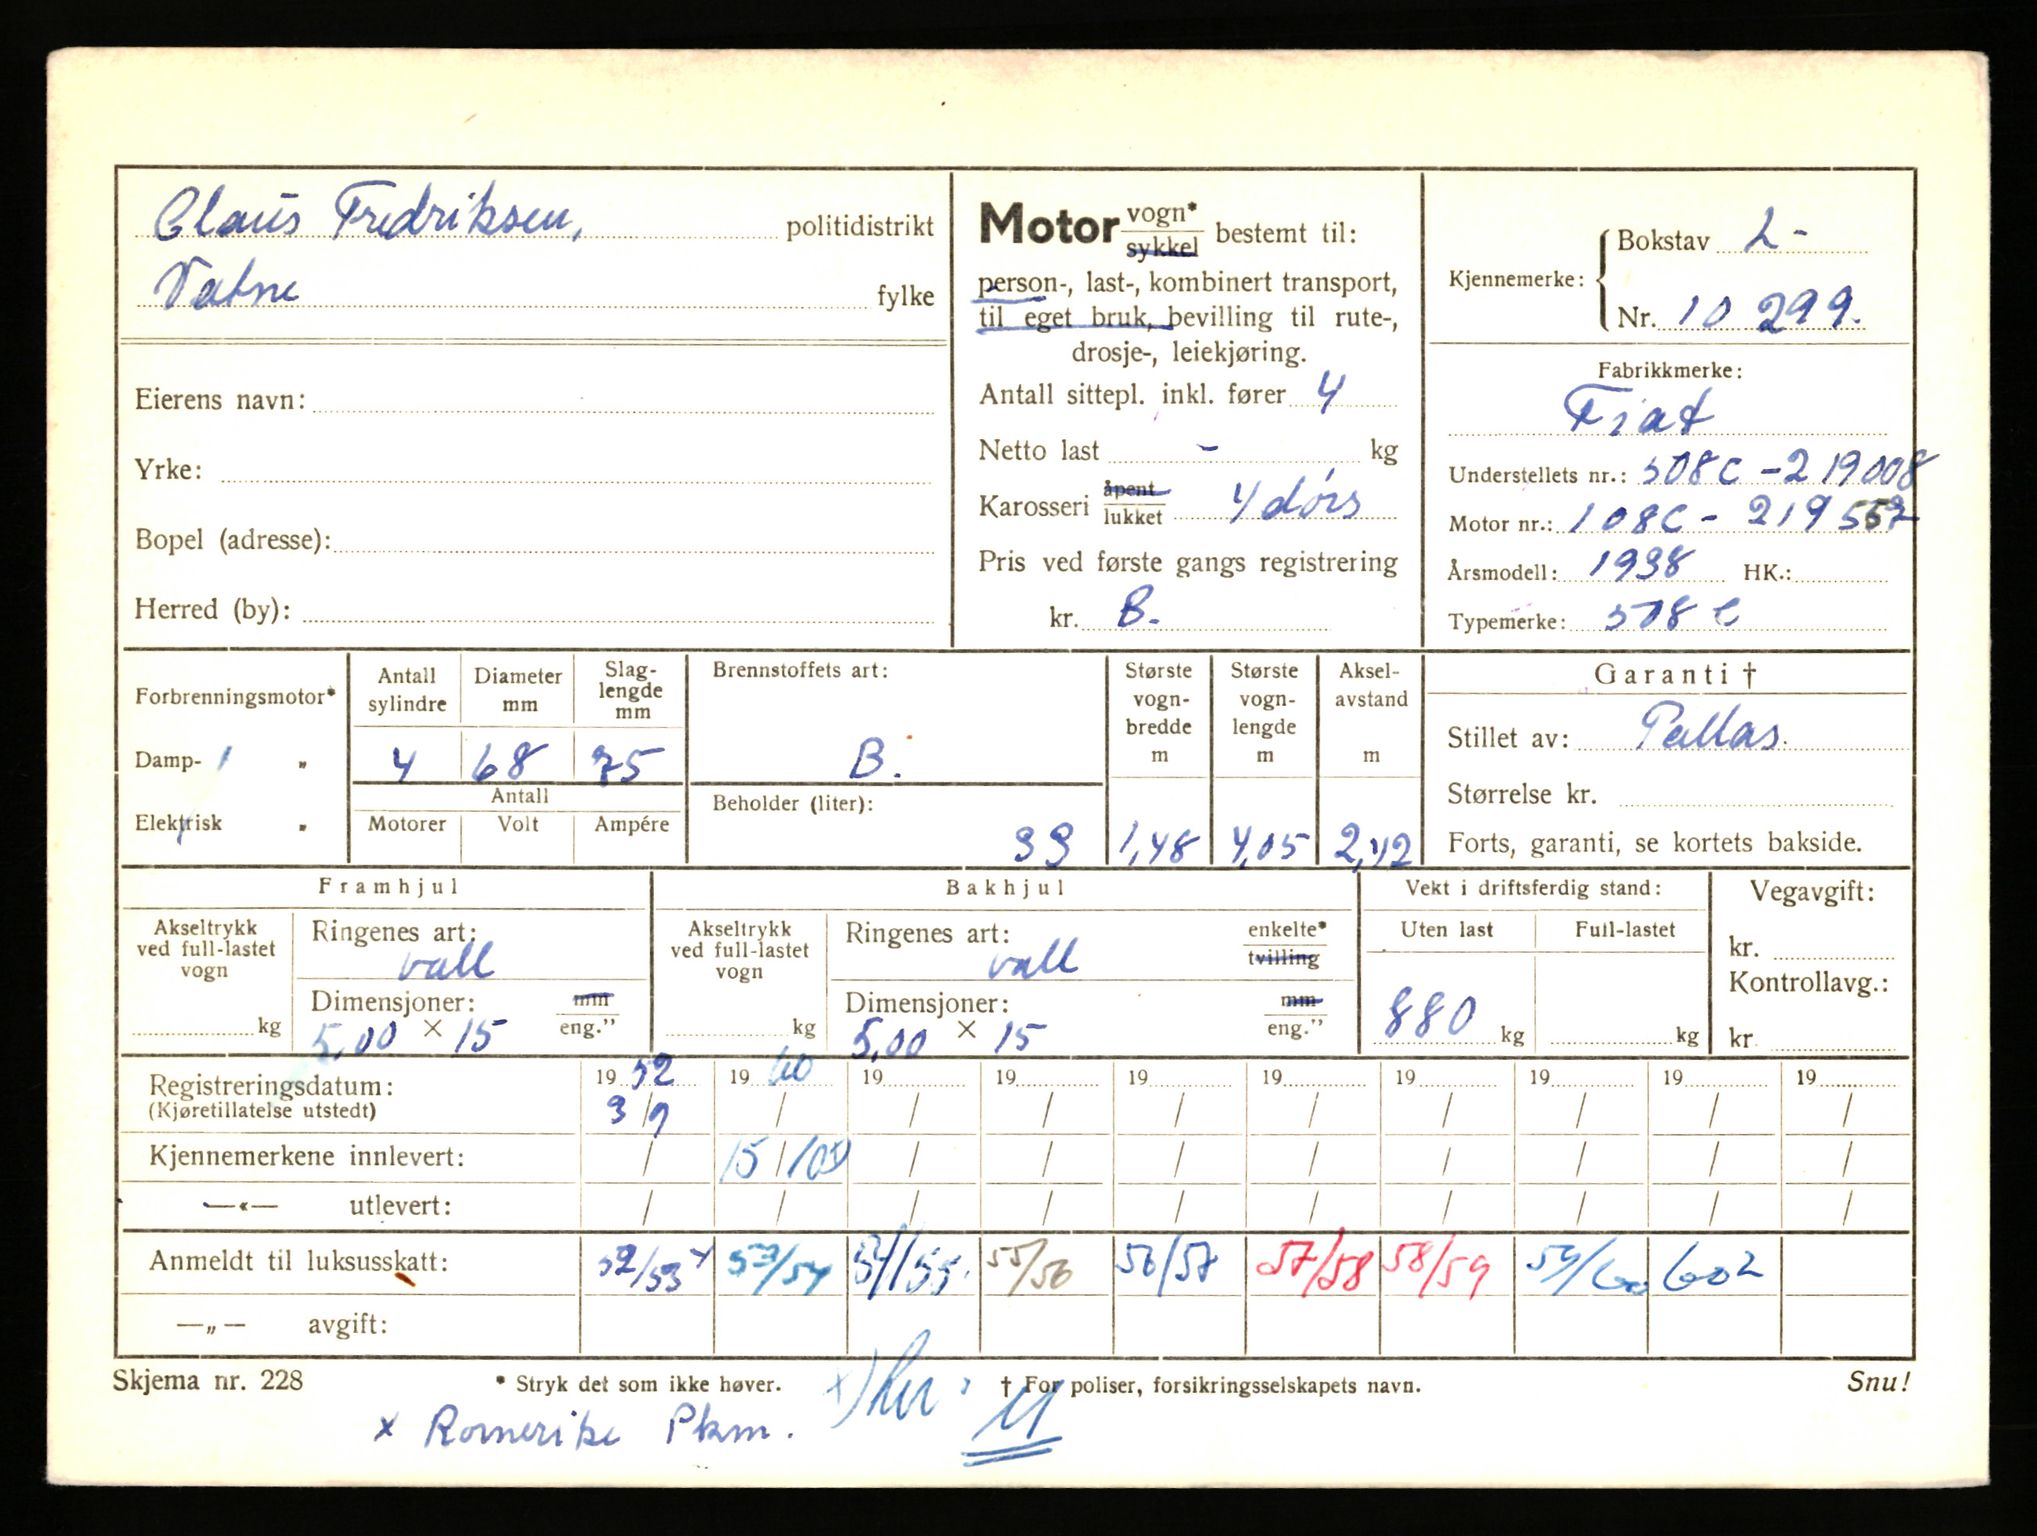 Claus Fredriksen, politidistrikt
Vatne fylke
Eierens navn:
Yrke:
Bopel (adresse):
Herred (by):
Motor vogn* sykkel bestemt til:
person-, last-, kombinert transport,
til eget bruk, bevilling til rute-,
drosje-, leiekjøring.
Antall sittepl. inkl. fører 4
Netto last - kg
Karosseri åpent lukket 4 dørs
Pris ved første gangs registrering
kr. B.
Kjennemerke: Bokstav L-
Nr. 10 299.
Fabrikkmerke:
Fiat
Understellets nr.: 508C-219008
Motor nr.: 108C-219557
Årsmodell: 1938 HK.:
Typemerke: 508 C
Forbrenningsmotor*
Damp- "
Elektrisk "
Antall sylindre
Diameter mm
Slag-lengde mm
4 68 75
Antall
Motorer Volt Ampére
Brennstoffets art:
B.
Beholder (liter):
33
Største vogn-bredde m
1,48
Største vogn-lengde m
4,05
Aksel-avstand m
2,42
Garanti †
Stillet av: Pallas.
Størrelse kr.
Forts, garanti, se kortets bakside.
Framhjul
Akseltrykk ved full-lastet vogn
kg
Ringenes art:
vall
Dimensjoner: mm eng."
5,00 × 15
Bakhjul
Akseltrykk ved full-lastet vogn
kg
Ringenes art: enkelte* tvilling
vall
Dimensjoner: mm eng."
5,00 × 15
Vekt i driftsferdig stand:
Uten last Full-lastet
880 kg kg
Vegavgift:
kr.
Kontrollavg.:
kr.
Registreringsdatum: 19 52 19 60 19 19 19 19 19 19 19 19
(Kjøretillatelse utstedt) 3/9 / / / / / / / / /
Kjennemerkene innlevert: / 15/10 x) / / / / / / / /
—«— utlevert: / / / / / / / / / /
Anmeldt til luksusskatt: 52/53 x 53/54 54/55. 55/56 56/57 57/58 58/59 59/60 60 2
—„— avgift:
Skjema nr. 228
* Stryk det som ikke høver.
† For poliser, forsikringsselskapets navn.
Snu!
x Romerike Pkm.